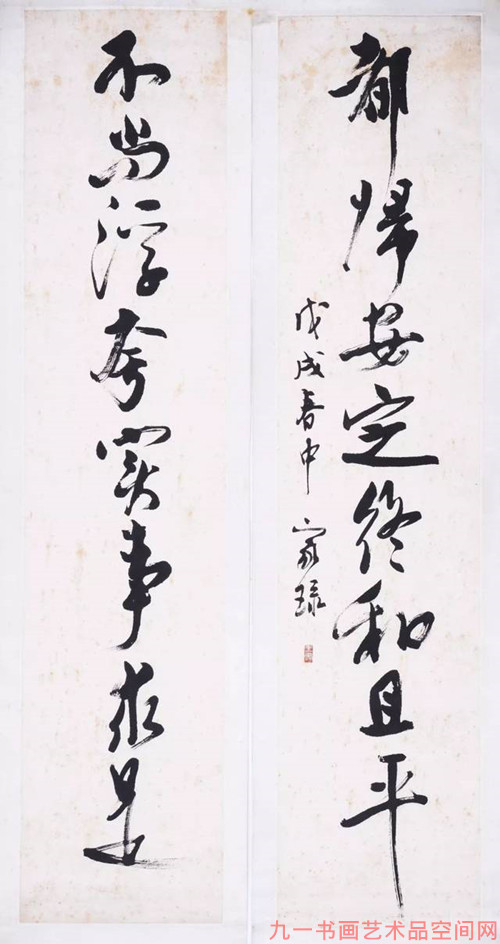 不尚浮夸實事求是
都歸安定終和且平
戊戌春中 家琭
九一书画艺术品空间网